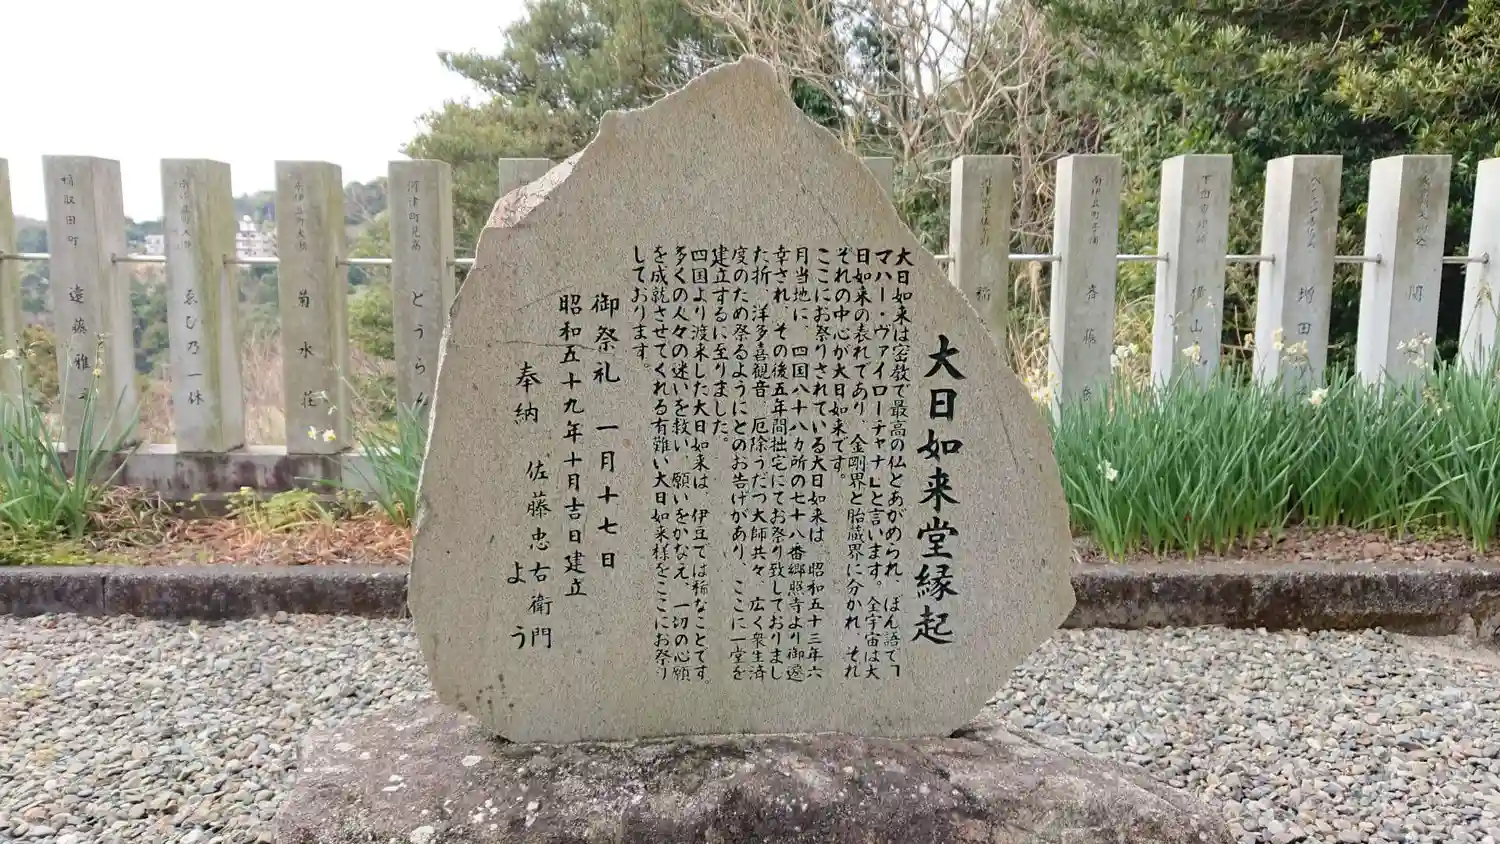 大日如来堂縁起
大日如来は密教で最高の仏とあがめられ、ぼん語で「
マハー・ヴァイローチャナ」と言います。全宇宙は大
日如来の表れであり、金剛界と胎蔵界に分かれ、それ
それの中心が大日如来です。
ここにお祭りされている大日如来は、昭和五十三年六
月当地に、四国八十八カ所の七十八番郷照寺より御遷
幸され、その後五年間拙宅にてお祭り致しておりまし
た折、洋多喜観音、厄除うだつ大師共々、広く衆生済
度のため祭るようにとのお告げがあり、ここに一堂を
建立するに至りました。
四国より渡来した大日如来は、伊豆では稀なことです。
多くの人々の迷いを救い、願いをかなえ、一切の心願
を成就させてくれる有難い大日如来様をここにお祭り
しております。
御祭礼 一月十七日
昭和五十九年十月吉日建立
奉納 佐藤忠右衛門
よう
稲取田町 遠藤雅
ゑび乃一休
菊水荘
河津町見高 とうら
稲
下田市 横山
増田
関